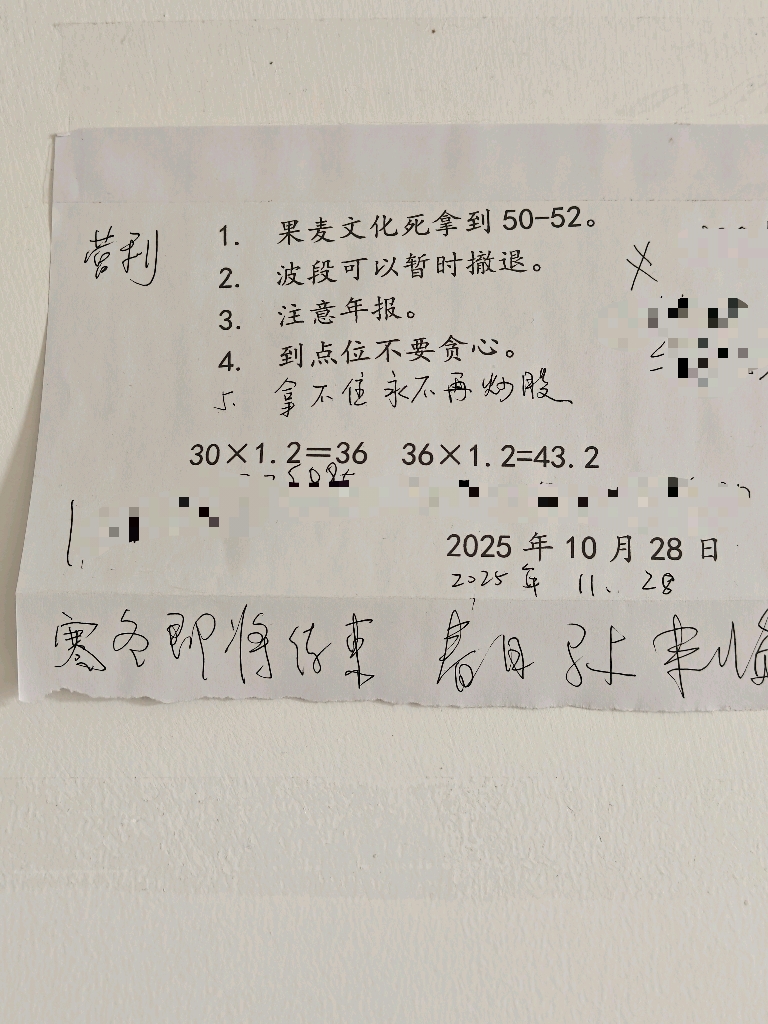 营利
1. 果麦文化死拿到 50-52。
2. 波段可以暂时撤退。
3. 注意年报。
4. 到点位不要贪心。
5. 拿不住永不再炒股
30×1.2=36 36×1.2=43.2
2025 年 10 月 28 日
2025 年 11. 28
寒冬即将结束 春日马上来临